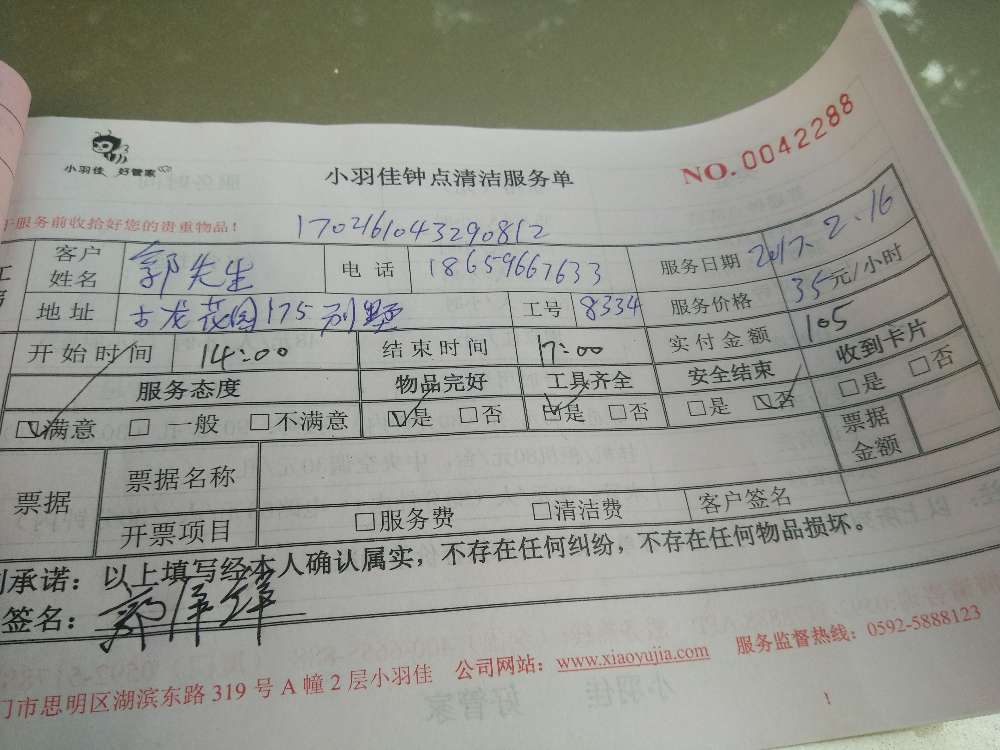 小羽佳 好管家
小羽佳钟点清洁服务单
NO. 0042288
服务前收拾好您的贵重物品!
1702161043290812
客户姓名 郭先生 电话 18659667633 服务日期 2017.2.16
地址 古龙花园175别墅 工号 8334 服务价格 35元/小时
开始时间 14:00 结束时间 17:00 实付金额 105
服务态度 物品完好 工具齐全 安全结束 收到卡片
☑满意 □一般 □不满意 ☑是 □否 ☑是 □否 □是 ☑否 □是 □否
票据 票据名称 票据金额
开票项目 □服务费 □清洁费 客户签名
承诺:以上填写经本人确认属实,不存在任何纠纷,不存在任何物品损坏。
签名:
门市思明区湖滨东路 319 号 A 幢 2 层小羽佳 公司网站:www.xiaoyujia.com 服务监督热线:0592-5888123
1